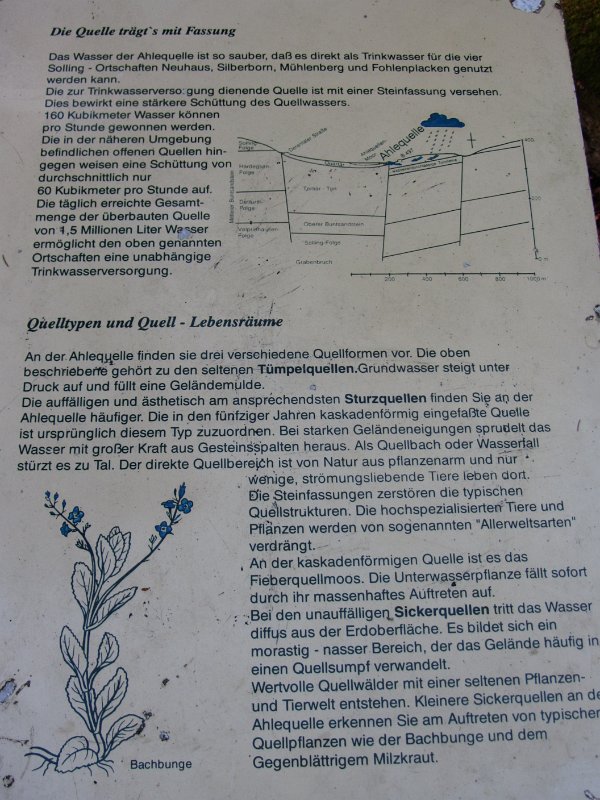 Die Quelle trägt`s mit Fassung
Das Wasser der Ahlequelle ist so sauber, daß es direkt als Trinkwasser für die vier
Solling - Ortschaften Neuhaus, Silberborn, Mühlenberg und Fohlenplacken genutzt
werden kann.
Die zur Trinkwasserversorgung dienende Quelle ist mit einer Steinfassung versehen.
Dies bewirkt eine stärkere Schüttung des Quellwassers.
160 Kubikmeter Wasser können
pro Stunde gewonnen werden.
Die in der näheren Umgebung
befindlichen offenen Quellen hin-
gegen weisen eine Schüttung von
durchschnittlich nur
60 Kubikmeter pro Stunde auf.
Die täglich erreichte Gesamt-
menge der überbauten Quelle
von 1,5 Millionen Liter Wasser
ermöglicht den oben genannten
Ortschaften eine unabhängige
Trinkwasserversorgung.
Ahlequelle
Folge
Hardegsen-
Folge
Detfurth-
Folge
Volpriehausen-
Folge
Mittlerer Buntsandstein
Oberer Buntsandstein
Solling-Folge
Grabenbruch
400
200
0 m
200 400 600 800 1000 m
Quelltypen und Quell - Lebensräume
An der Ahlequelle finden sie drei verschiedene Quellformen vor. Die oben
beschriebene gehört zu den seltenen Tümpelquellen.Grundwasser steigt unter
Druck auf und füllt eine Geländemulde.
Die auffälligen und ästhetisch am ansprechendsten Sturzquellen finden Sie an der
Ahlequelle häufiger. Die in den fünfziger Jahren kaskadenförmig eingefaßte Quelle
ist ursprünglich diesem Typ zuzuordnen. Bei starken Geländeneigungen sprudelt das
Wasser mit großer Kraft aus Gesteinsspalten heraus. Als Quellbach oder Wasserfall
stürzt es zu Tal. Der direkte Quellbereich ist von Natur aus pflanzenarm und nur
wenige, strömungsliebende Tiere leben dort.
Die Steinfassungen zerstören die typischen
Quellstrukturen. Die hochspezialisierten Tiere und
Pflanzen werden von sogenannten "Allerweltsarten"
verdrängt.
An der kaskadenförmigen Quelle ist es das
Fieberquellmoos. Die Unterwasserpflanze fällt sofort
durch ihr massenhaftes Auftreten auf.
Bei den unauffälligen Sickerquellen tritt das Wasser
diffus aus der Erdoberfläche. Es bildet sich ein
morastig - nasser Bereich, der das Gelände häufig in
einen Quellsumpf verwandelt.
Wertvolle Quellwälder mit einer seltenen Pflanzen-
und Tierwelt entstehen. Kleinere Sickerquellen an de
Ahlequelle erkennen Sie am Auftreten von typischen
Quellpflanzen wie der Bachbunge und dem
Gegenblättrigem Milzkraut.
Bachbunge